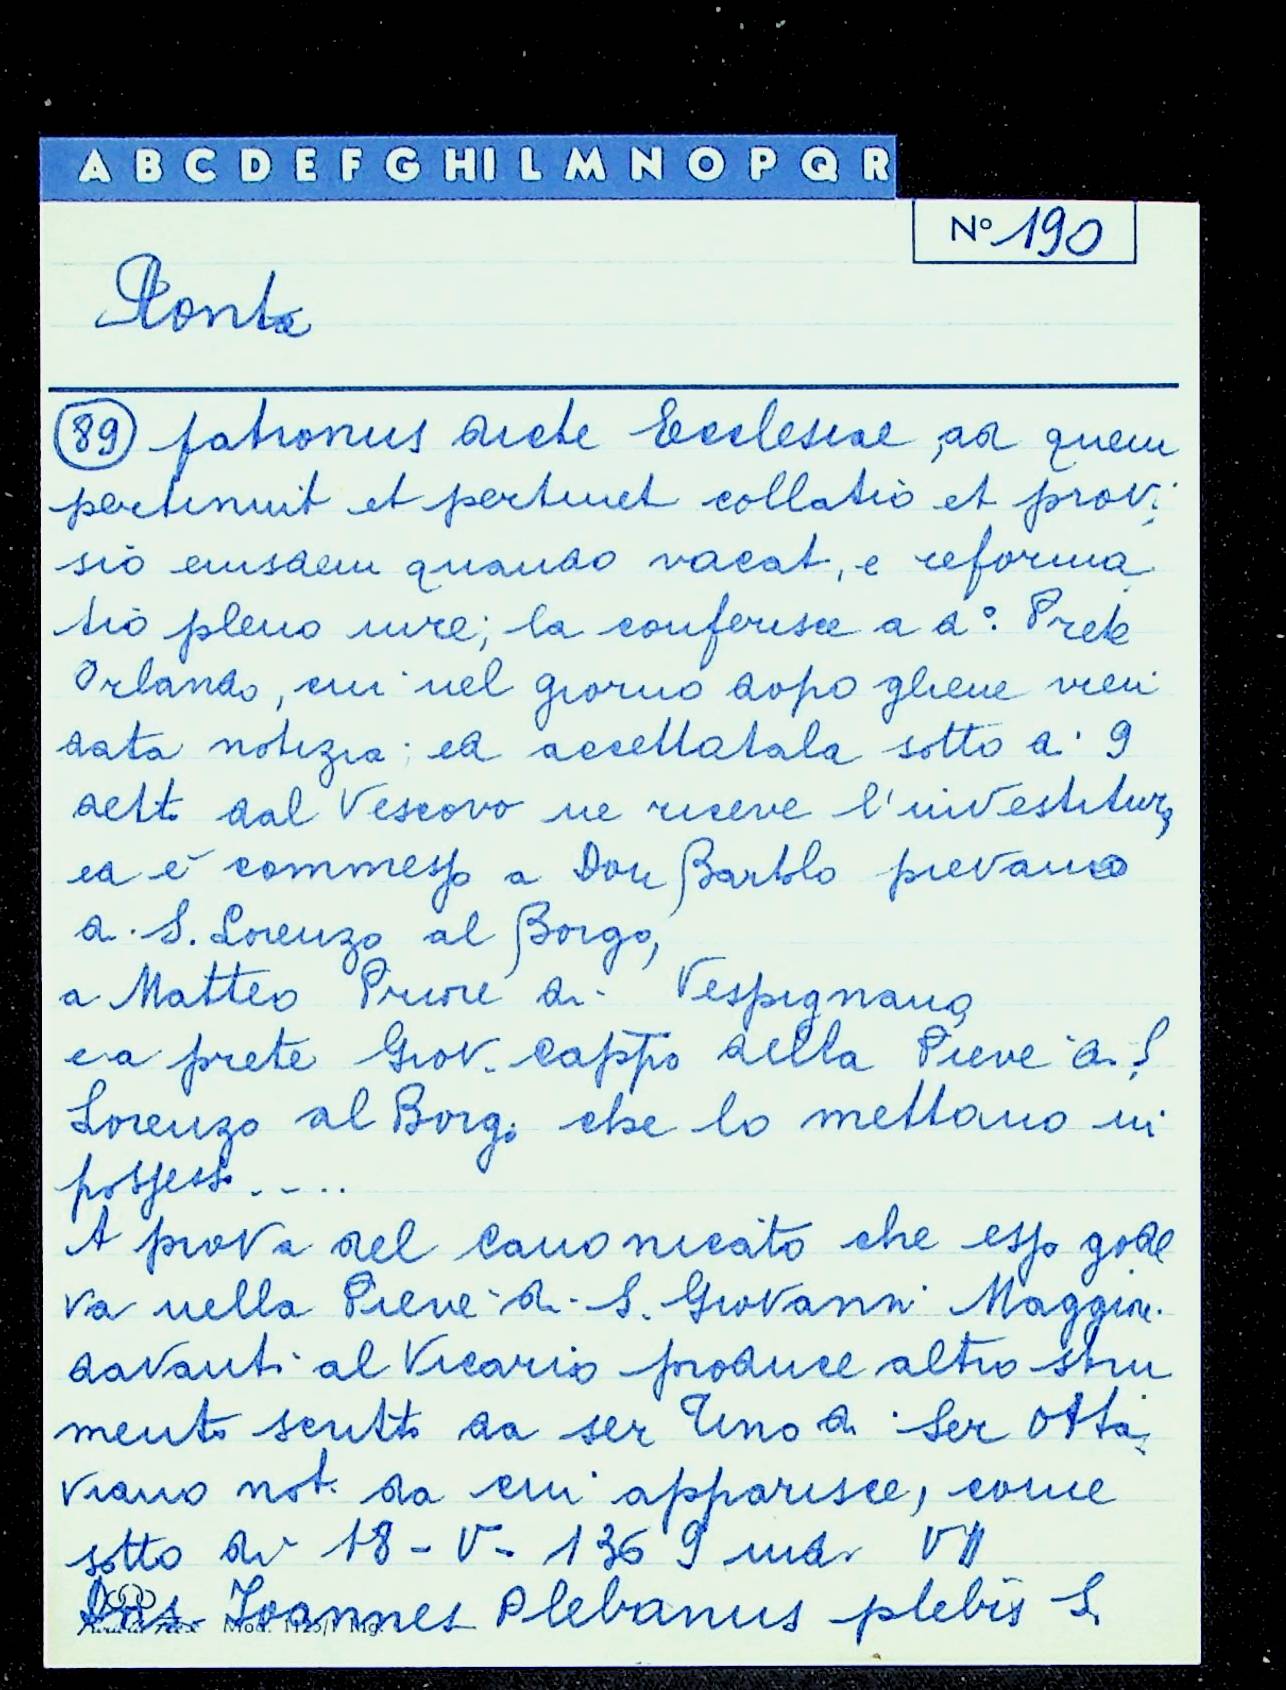 A B C D E F G H I L M N O P Q R
Nº 190
Ronta
89 patronus dicte Ecclesiae, ad quem
pertinuit et pertinet collatio et provi
sio eiusdem quando vacat, e reforma
tio pleno iure; la conferisce a dº: Prete
Orlando, cui nel giorno dopo gliene vien
data notizia; ed accettatala sotto di 9
detto dal Vescovo ne riceve l'investitura
ed è commesso a Don Bartolo pievano
di S. Lorenzo al Borgo,
a Matteo Priore di Vespignano
e a prete Giov. cappño della Pieve di S.
Lorenzo al Borgo che lo mettano in
possesso....
A prova del canonicato che esso gode
va nella Pieve di S. Giovanni Maggiore
davanti al Vicario produce altro stru
mento scritto da ser Tino di Ser Otta
viano not. da cui apparisce, come
sotto dì 18-V-1369 ind. VII
Dns. Joannes Plebanus plebis S.
Mod. 1125/1 Mg.